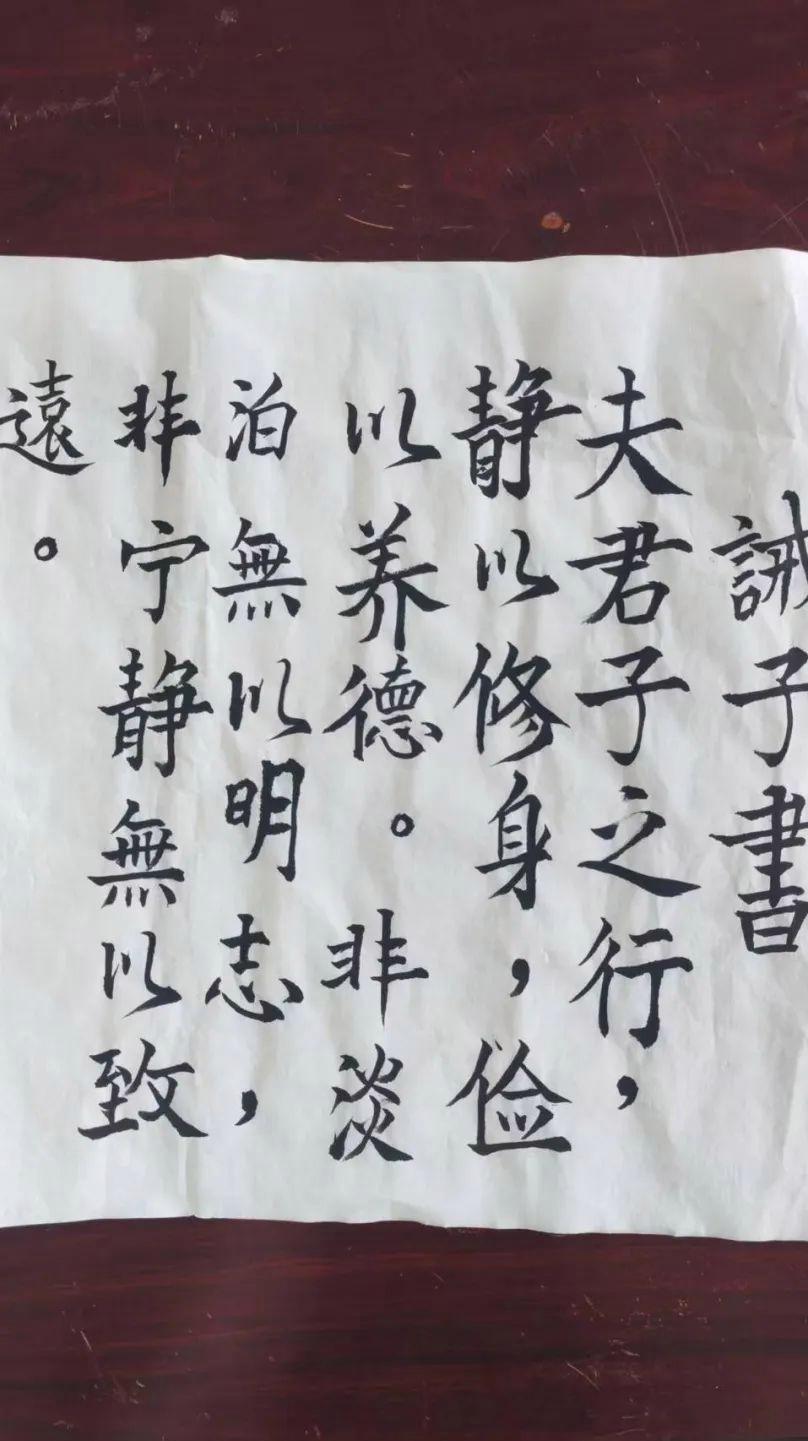 誡子書
夫君子之行，
静以修身，俭
以养德。非淡
泊無以明志，
非宁静無以致
遠。